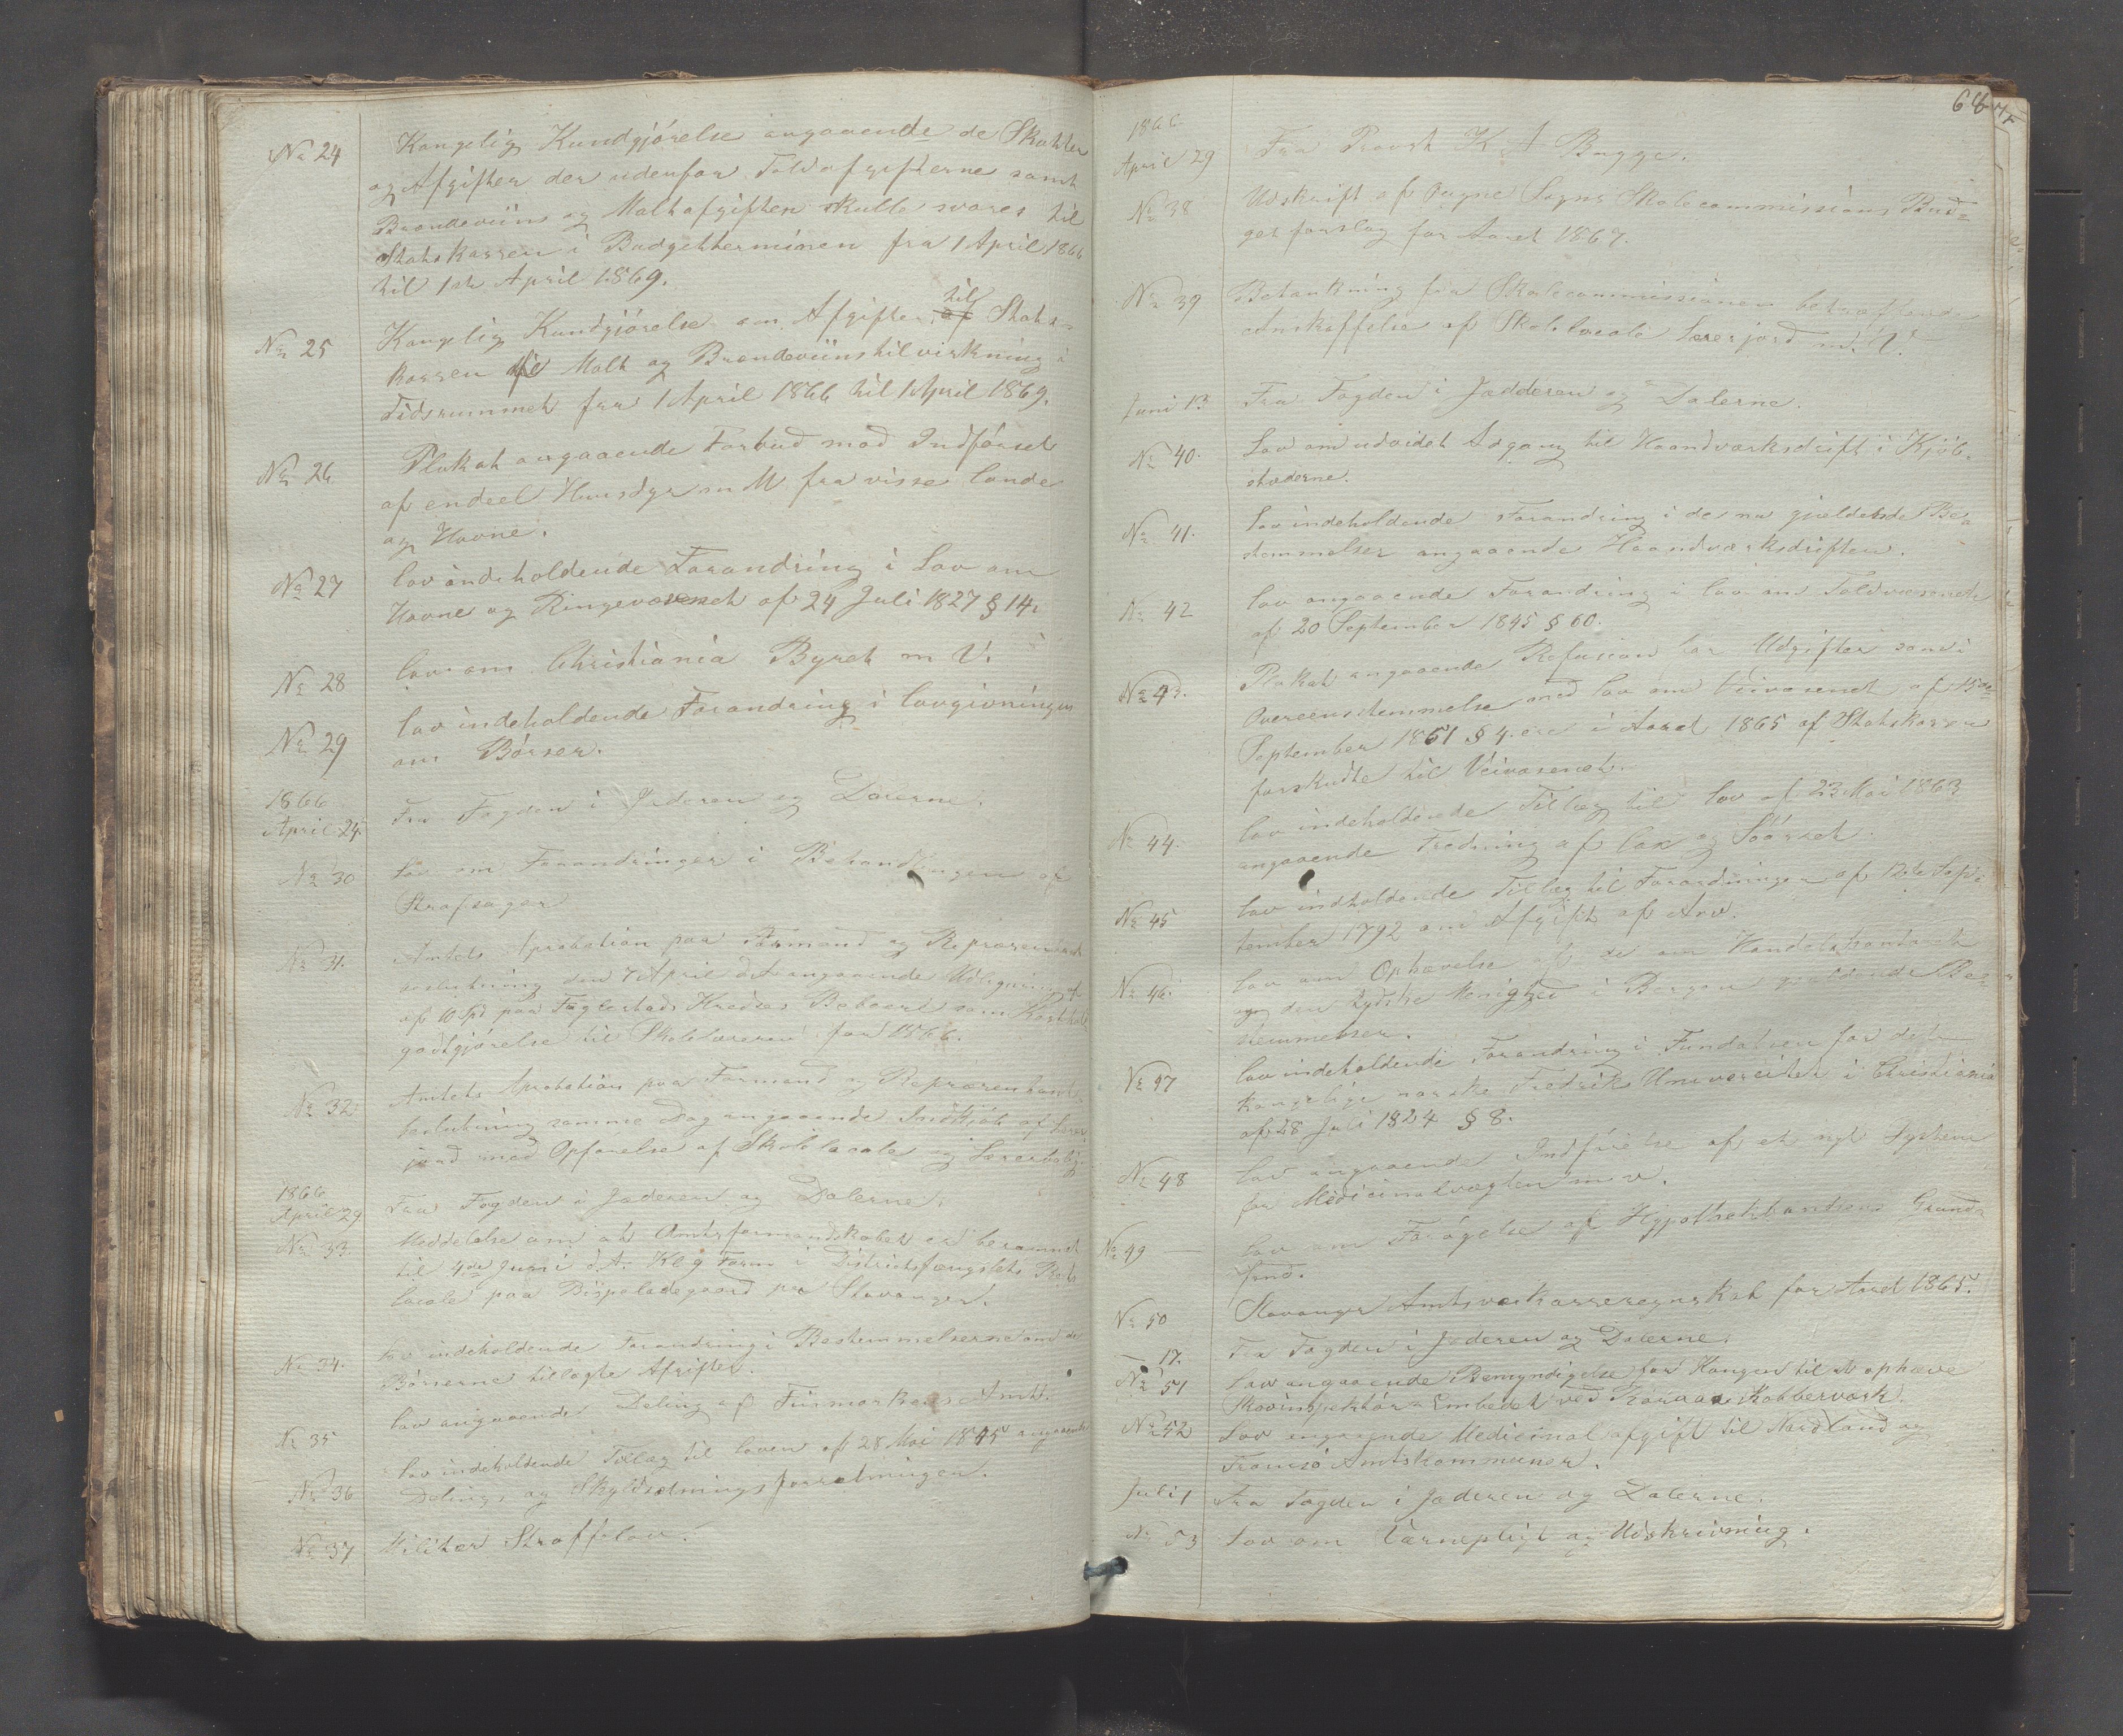 No 24 Kongelig Kundgjörelse angaaende de Skatter
og Afgifter der udenfor Toldafgifterne samt
Brændeviins og Maltafgiften skulle svares til
Statskassen i Budgetterminen fra 1 April 1866
til 1ste April 1869.
No 25 Kongelig Kundgjörelse om Afgifter af til Stats-
kassen af Malt og Brændeviinstilvirkning i
Tidsrummet fra 1 April 1866 til 1 April 1869.
No 26 Plakat angaaende Forbud mod Indförsel
af endeel Huusdyr m M fra visse Lande
og Havne.
No 27 Lov indeholdende Forandring i Lov om
Havne og Ringevæsenet af 24 Juli 1827 § 14.
No 28 Lov om Christiania Byret m V.
No 29 Lov indeholdende Forandring i Lovgivningen
om Börser.
1866
April 24. Fra Fogden i Jæderen og Dalerne.
No 30 Lov om Forandringer i Behandlingen af
Straffesager
No 31. Amtets Aprobation paa Formand og Repræsentant
beslutning den 7 April d.A. angaaende Udligning af
af 10 Spd paa Fuglestads Kredses Beboere som Kosthold
godtgjörelse til Skolelæreren for 1866.
No 32 Amtets Aprobation paa Formand og Repræsentant-
beslutning samme Dag angaaende Indkjöb af Lærer
jord med Opförelse af Skolelocale og Lærerbolig.
1866
April 29 Fra Fogden i Jæderen og Dalerne.
No 33 Meddelelse om at Amtsformandskabet er berammet
til 4de Juni d.A. Kl 9 Form i Distriktsfængslets Rets
locale paa Bispeladegaard ved Stavanger.
No 34. Lov indeholdende Forandring i Bestemmelserne om de
Börserne tillagte Afgifter.
No 35 Lov angaaende Deling af Finmarkens Amt.
No 36 Lov indeholdende Tillæg til Loven af 28 Mai 1845 angaaende
Delings og Skyldsætningsforretninger.
No 37 Militær Straffelov.
68
1866
April 29 Fra Provst K A Bugge.
No 38 Udskrift af Ougne Sogns Skolecommissions Bud-
getforslag for Aaret 1867.
No 39 Betænkning fra Skolecommissionen betræffende
Anskaffelse af Skolelocale Lærerjord m. V.
Juni 13 Fra Fogden i Jædderen og Dalerne.
No 40. Lov om udvidet Adgang til Haandværksdrift i Kjöb-
stæderne.
No 41. Lov indeholdende Forandring i de nu gjældende Be-
stemmelser angaaende Haandværksdriften.
No 42 Lov angaaende Forandring i Lov om Toldvæsenet
af 20 September 1845 § 60.
No 43. Plakat angaaende Refusion for Udgifter som i
Overeensstemmelse med Lov om Veivæsenet af 15de
September 1851 § 4. ere i Aaret 1865 af Statskassen
forskudte til Veivæsenet.
No 44. Lov indeholdende Tillæg til Lov af 23 Mai 1863
angaaende Fredning af Lax og Söörret.
No 45 Lov indholdende Tillæg til Forordningen af 12te Sep-
tember 1792 om Afgift af Arv.
No 46 Lov om Ophævelse af de om Handelskontoret
og den tydske Menighed i Bergen gjældende Be-
stemmelser.
No 47 Lov indeholdende Forandring i Fundatsen for det
kongelige norske Fredriks Universitet i Christiania
af 28 Juli 1824 § 8.
No 48 Lov angaaende Indförelse af et nyt System
for Medicinalvægten m v.
No 49 Lov om Forögelse af Hypothekbankens Grund-
fond.
No 50 Stavanger Amtsveikasseregnskab for Aaret 1865.
17. Fra Fogden i Jæderen og Dalerne.
No 51 Lov angaaende Bemyndigelse for Kongen til at ophæve
Skovinspektör Embedet ved Röraas Kobberværk.
No 52 Lov angaaende Medicinalafgift til Nordland og
Tromsö Amtskommuner.
Juli 1 Fra Fogden i Jæderen og Dalerne.
No 53 Lov om Værnepligt og Udskrivning.